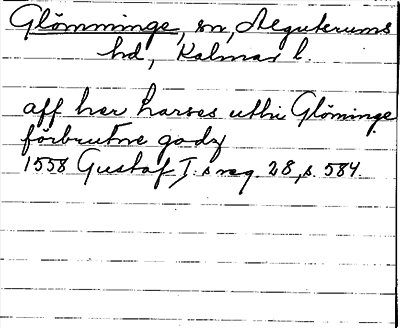 Glömminge, sn, Algutsrums
hd, Kalmar l.
aff her Larses uthi Glöminge
förbrutne godz
1558 Gustaf I:s reg. 28, s. 584.